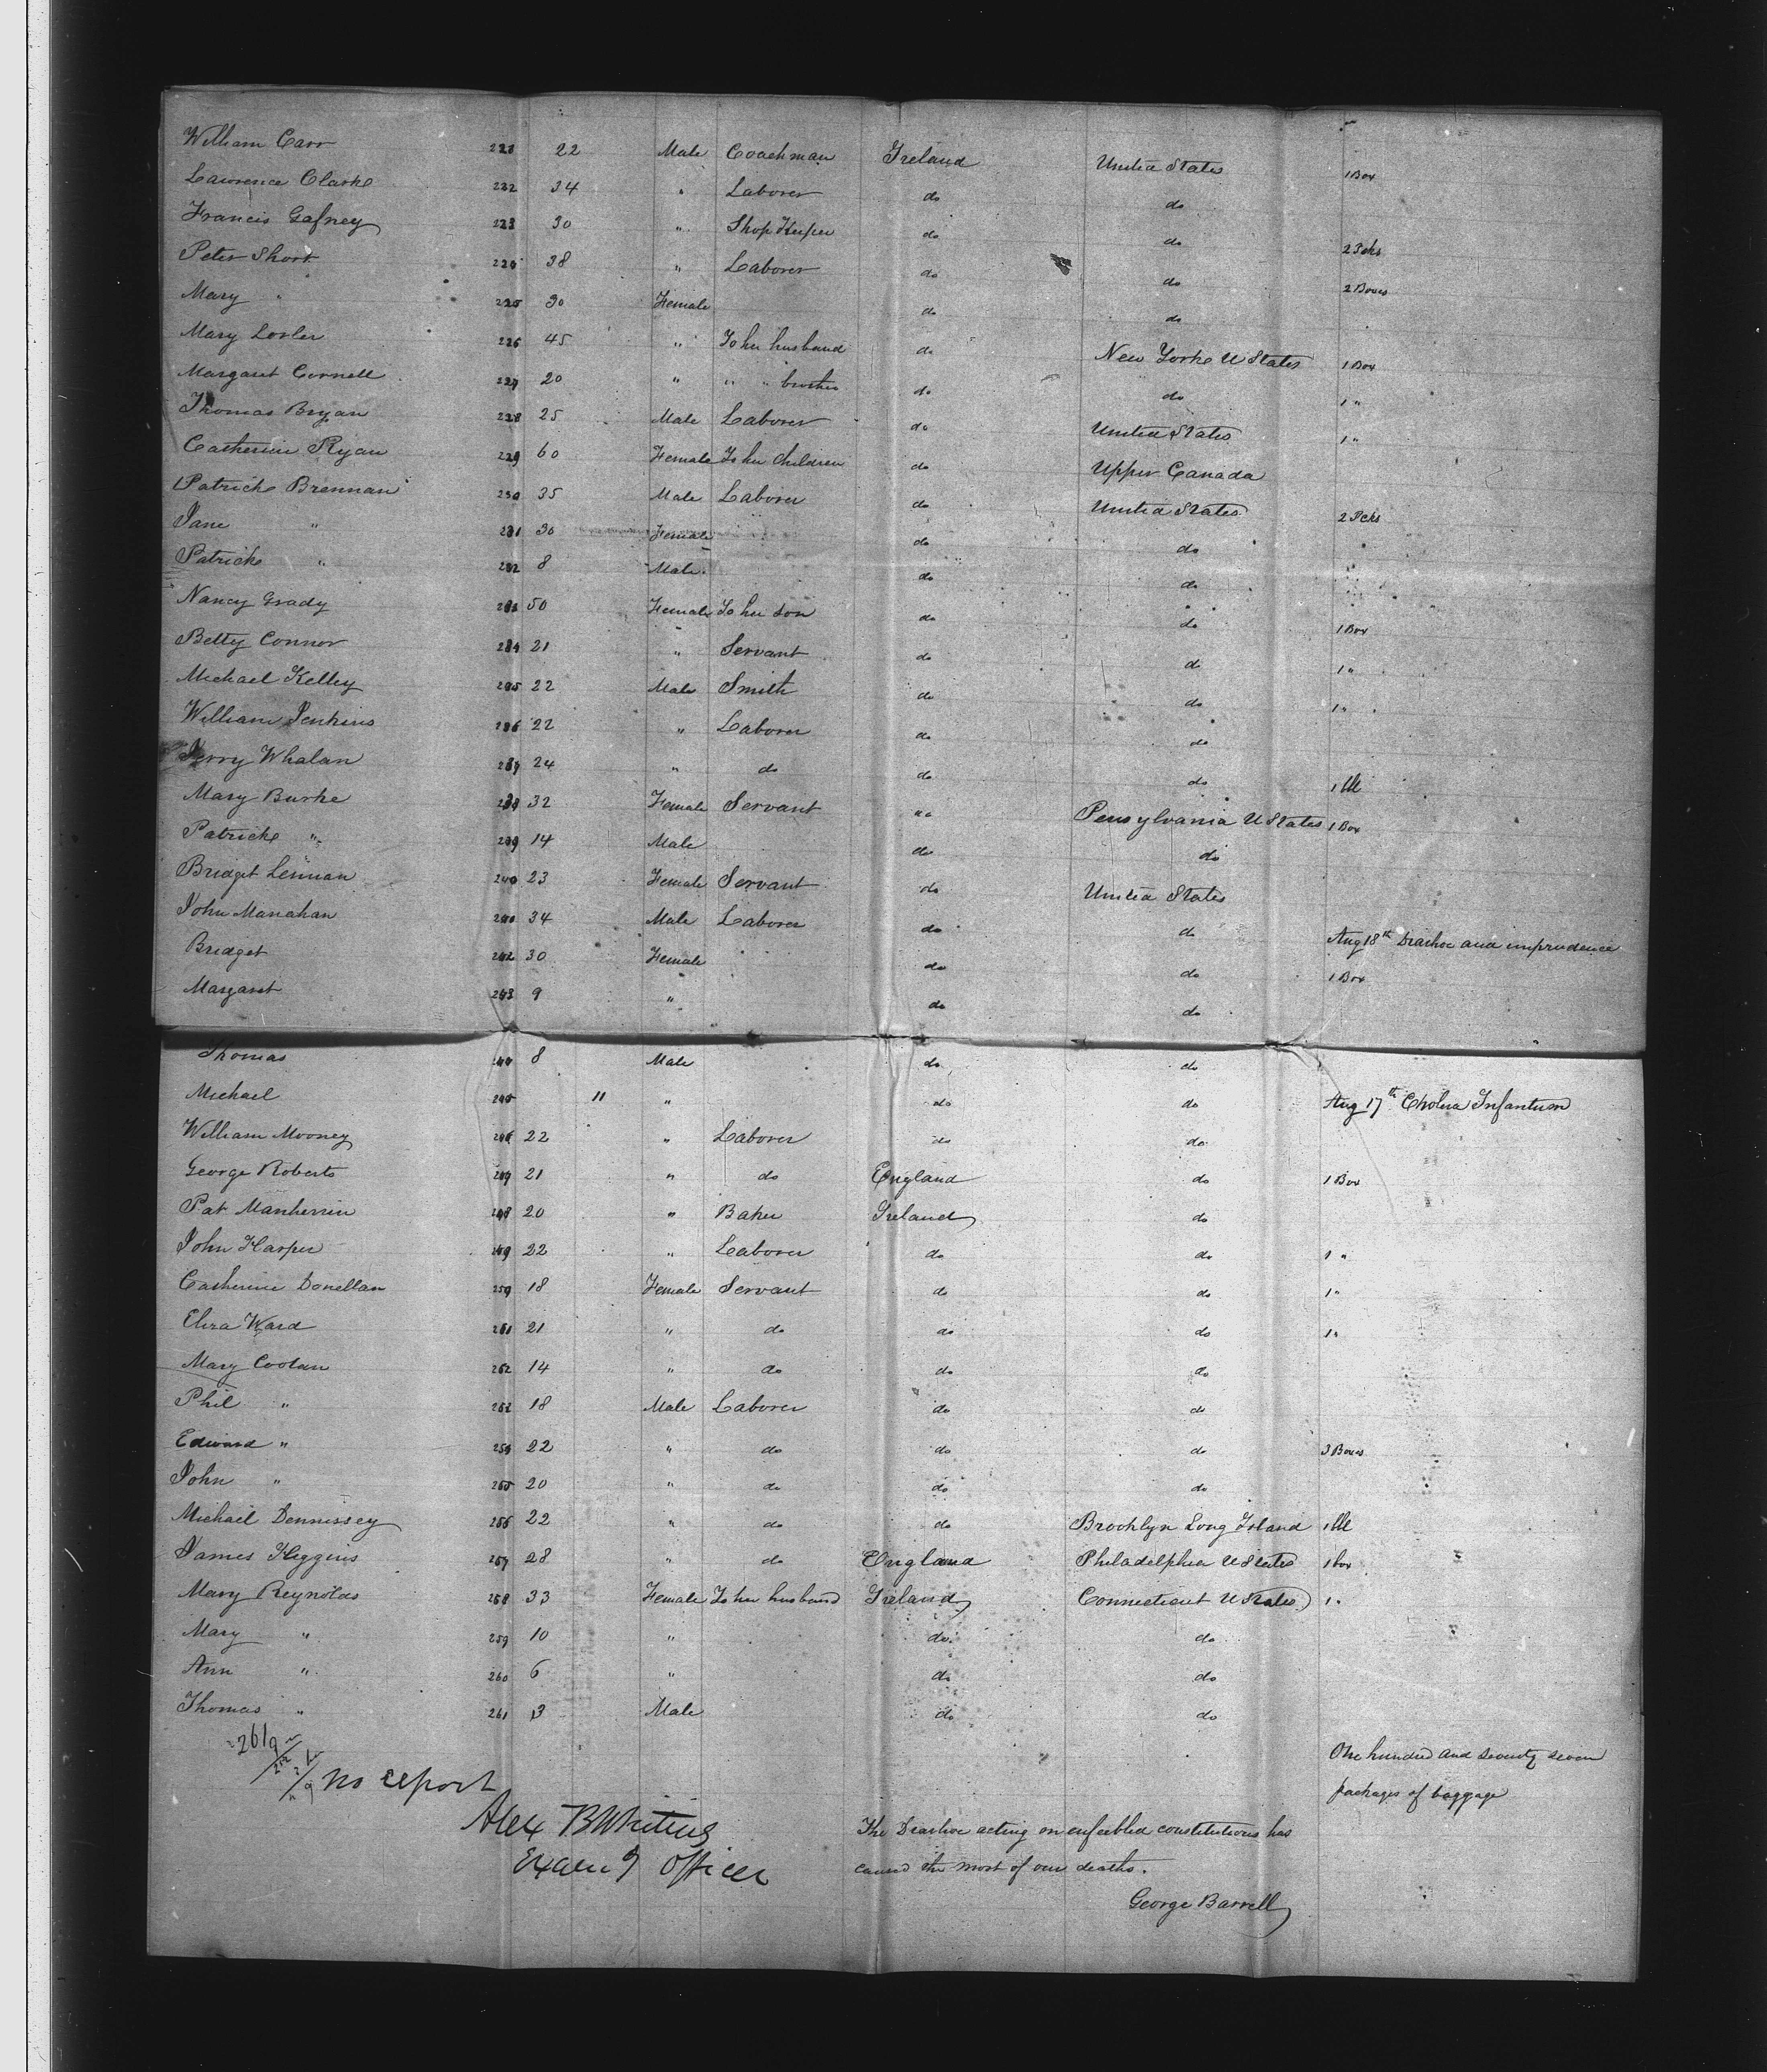 William Carr 221 22 Male Coachman Ireland United States 1 Box
Lawrence Clarke 222 34 " Laborer do do
Francis Gafney 223 30 " Shop Keeper do do 2 Pcks
Peter Short 224 38 " Laborer do do 2 Boxes
Mary " 225 30 Female do do
Mary Lovler 226 45 " To her husband do New Yorke U States 1 Box
Margaret Cornell 227 20 " " " brother do do 1 "
Thomas Bryan 228 25 Male Laborer do United States 1 "
Catherine Ryan 229 60 Female To her Children do Upper Canada
Patrick Brennan 230 35 Male Laborer do United States 2 Pcks
Jane " 231 30 Female do do
Patrick " 232 8 Male do do
Nancy Grady 233 50 Female To her son do do 1 Box
Betty Connor 234 21 " Servant do do 1 "
Michael Kelley 235 22 Male Smith do do 1 "
William Jenkins 236 22 " Laborer do do
Jerry Whalan 237 24 " do do do 1 bbl
Mary Burke 238 32 Female Servant do Pensylvania U States 1 Box
Patrick " 239 14 Male do do
Bridget Lennan 240 23 Female Servant do United States
John Manahan 241 34 Male Laborer do do Aug 18th Diarhoe and imprudence
Bridget 242 30 Female do do 1 Box
Margaret 243 9 " do do
Thomas 244 8 Male do do
Michael 245 11 " do do Aug 17th Cholera Infantum
William Mooney 246 22 " Laborer do do
George Roberts 247 21 " do England do 1 Box
Pat Manherrin 248 20 " Baker Ireland do
John Harper 249 22 " Laborer do do 1 "
Catherine Donellan 250 18 Female Servant do do 1 "
Eliza Ward 251 21 " do do do 1 "
Mary Coolan 252 14 " do do do
Phil " 253 18 Male Laborer do do
Edward " 254 22 " do do do 3 Boxes
John " 255 20 " do do do
Michael Dennissey 256 22 " do do Brooklyn Long Island 1 bbl
James Higgins 257 28 " do England Philadelphia U States 1 box
Mary Reynolds 258 33 Female To her husband Ireland Connecticut U States 1 "
Mary " 259 10 " do do
Ann " 260 6 " do do
Thomas " 261 13 Male do do
261 9
One hundred and seventy seven
packages of baggage
no report
Alex B Whiting
Exam'g Officer
The Diarhoe acting on enfeebled constitutions has
caused the most of our deaths.
George Barrell